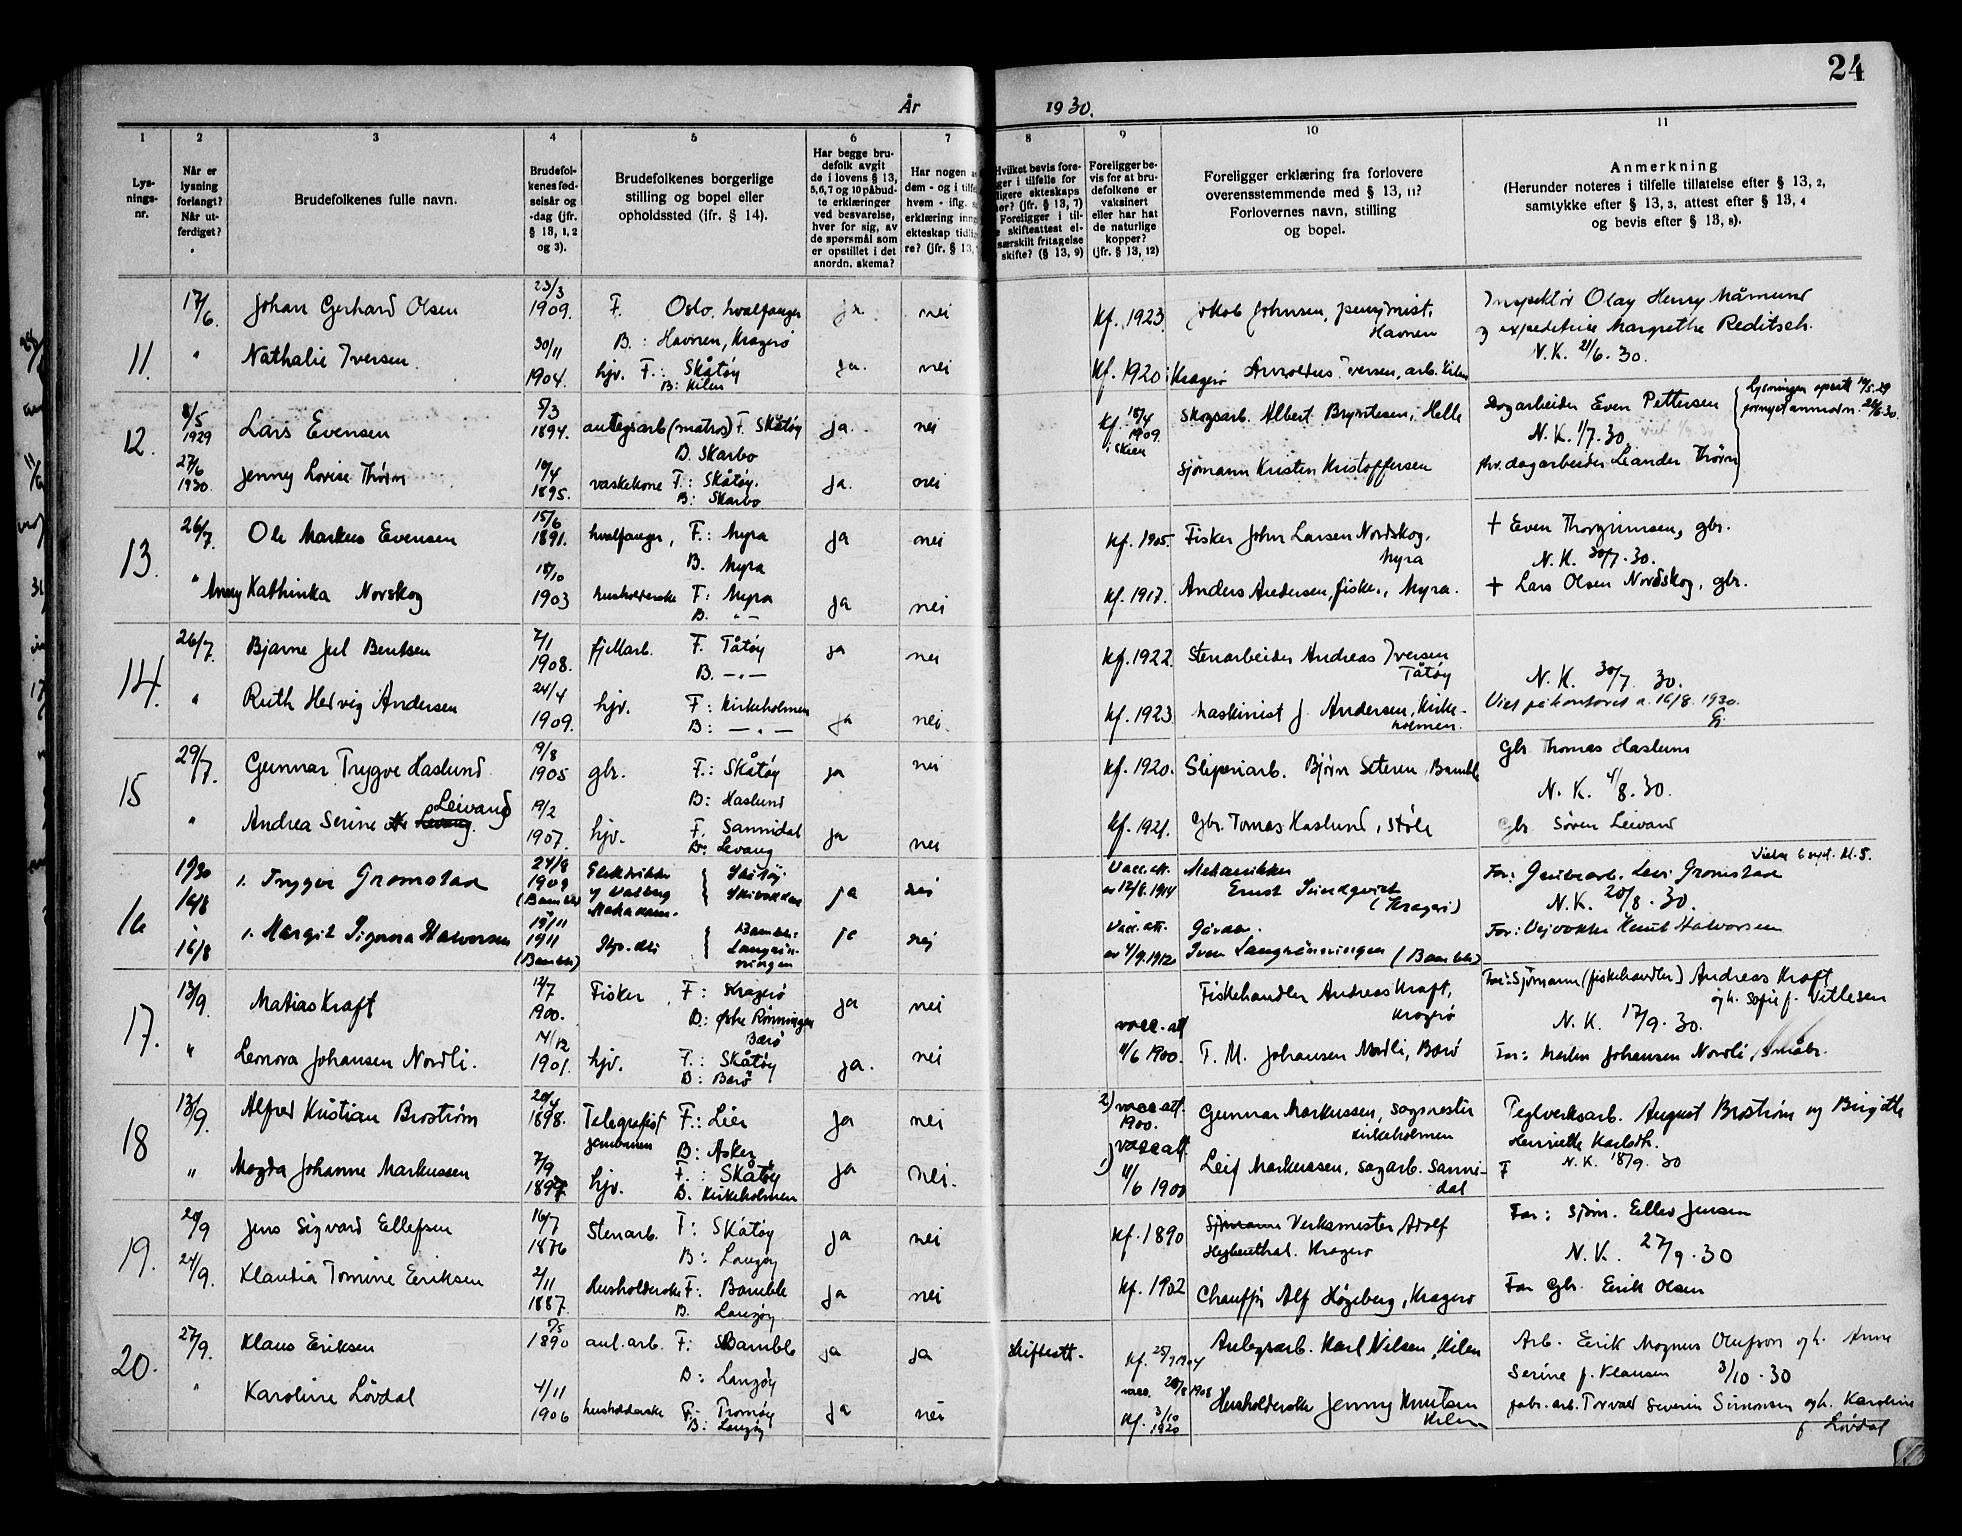 24
År 1930.
1 2 3 4 5 6 7 8 9 10 11
Lys-
nings-
nr.
Når er
lysning
forlangt?
Når ut-
ferdiget?
Brudefolkenes fulle navn.
Brudefol-
kenes fød-
selsår og
-dag (jfr.
§ 13, 1, 2
og 3).
Brudefolkenes borgerlige
stilling og bopel eller
opholdssted (ifr. § 14).
Har begge bru-
defolk avgit
de i lovens § 13,
5,6,7 og 10 påbud-
te erklæringer
ved besvarelse,
hver for sig, av
de spørsmål som
er opstillet i det
anordn. skema?
Har nogen a
dem - og i tilfe
hvem - iflg.
erklæring inng
ekteskap tidlig
re? (jfr. § 13,
Hvilket bevis fore-
ger i tilfelle for
ligere ekteskaps
hør? (jfr. § 13, 7)
Foreligger i til-
e skifteattest el-
særskilt fritagelse
skifte? (§ 13, 9)
Foreligger be-
vis for at bru-
defolkene er
vaksinert
eller har hat
de naturlige
kopper?
(jfr. § 13, 12)
Foreligger erklæring fra forlovere
overensstemmende med § 13, 11?
Forlovernes navn, stilling
og bopel.
Anmerkning
(Herunder noteres i tilfelle tillatelse efter § 13, 2,
samtykke efter § 13, 3, attest efter § 13, 4
og bevis efter § 13, 8).
11.
17/6. Johan Gerhard Olsen 23/3 1909. F. Oslo, hvalfanger ja nei kf. 1923 Jakob Johnsen, pensjonist, Inspektør Olav Henry Måmund
B.: Havnen, Kragerø Havnen og expeditrise Margrethe Reditsch.
" Nathalie Iversen. 30/11 1904. hjv. F.: Skåtøy ja. nei kf. 1920 i Kragerø Arnoldus Iversen, arb. Kilen N.K. 21/6. 30.
B: Kilen
12.
8/5 1929 Lars Evensen 5/3 1894. anlegsarb (matros) F. Skåtøy ja. nei kf. 18/4 1909. i Skien Skogsarb. Albert Brynilsen, Helle Dagarbeider Even Pettersen
B. Skarbo N.K. 1/7. 30.
27/6 1930. Jenny Lovise Thorin 10/4 1895. vaskekone F.: Skåtøy. ja. nei Sjømann Kristen Kristoffersen fhv. dagarbeider Leander Thorin
B: Skarbo
13.
26/7. Ole Markus Evensen 15/6 1891. hvalfanger, F.: Myra ja nei kf. 1905. Fisker John Larsen Nordskog, + Even Thorgrimsen, gbr.
B. Myra Myra N.K. 30/7. 30.
" Anny Kathinka Norskog 18/10 1903 husholderske F: Myra ja nei kf. 1917. Anders Andersen, fisker, Myra. + Lars Olsen Nordskog, gbr.
B. "-
14.
26/7. Bjarne Jul Bentsen 7/1 1908. fjellarb. F. Tåtøy ja nei kf. 1922. Stenarbeider Andreas Iversen
B. -"- Tåtøy N.K. 30/7. 30.
" Ruth Hedvig Andersen 24/4 1909. hjv. F: Kirkeholmen ja nei. kf. 1923 Maskinist J. Andersen, Kirke- Viet på kontoret d. 16/8. 1930.
B: -"- holmen.
15
29/7. Gunnar Trygve Haslund 19/8 1905 gbr. F.: Skåtøy ja nei kf. 1920. Sliperiarb. Bjørn Seteren, Bamble Gbr Thomas Haslum
B: Haslund N.K. 4/8. 30.
" Andrea Serine Leivand 19/2 1907. hjv. F. Sannidal ja nei kf. 1921. Gbr. Tomas Haslund, Støle Gbr Søren Leivand
B: Levang
16
16/8 1. Trygve Gromstad 24/8 1909 (Bamble) Elektriker v/ Valberg ja nei Vacc. att. av 12/8. 1914 Mekaniker Far: Grubearb. Levi Gromstad
Ernst Sundqvist (Kragerø) N.K. 20/8. 30.
16/8 1. Margit Sigovna Halvorsen 19/11 1911 (Bamble) Bamble ja nej Vacc. att. av 4/9. 1912 Iver Langrønningen (Bamble) Far: Vejvokter Knut Halvorsen
17.
13/9. Matias Kraft 12/7 1900. Fisker, F: Kragerø ja nei Fiskehandler Andreas Kraft, Far: Sjømann (fiskehandler) Andreas Kraft
B: Østre Rønningen Kragerø og h. Sofie f. Vetlesen
Barø N.K. 17/9. 30.
" Leonora Johansen Nordli. 14/12 1901. hjv. F.: Skåtøy ja. nei vacc. att 11/6 1900. T. M. Johansen Nordli, Barø Far: Martin Johansen Nordli, småbr.
B: Barø
18
13/9. Alfred Kristian Brostrøm 20/4 1898. Telegrafist F.: Lier ja nei 2) vacc att. 1900. Gunnar Markussen, sagmester Teglverksarb. August Brostrøm og Birgitte
B: Asker Kirkeholmen Henriette Karlsdt.
" Magda Johanne Markussen 7/9 1897 hjv. F.: Skåtøy ja nei. 1) vacc att 11/6 1900 Leif Markussen, sagarb. Sanni- F N.K. 18/9. 30
B. Kirkeholmen dal
19.
20/9 Jens Sigvard Ellefsen 16/7 1876 Stenarb. F: Skåtøy ja nei kf. 1890 Sjømann Verksmester Adolf Far: Sjøm. Ellev Jensen
B: Langøy Heybenthal. Kragerø N.K. 27/9. 30
24/9. Klaudia Tomine Eriksen 2/11 1887. Husholderske F: Bamble ja nei kf. 1902 Chauffør Alf Høgeberg, Kragerø Far Gbr. Erik Olsen
B. Langøy
20.
27/9. Klaus Eriksen 7/5 1890 anl. arb. F: Bamble ja ja skifteatt. kf. 25/9 1904 Anlegsarb. Karl Nilsen, Kilen Arb. Erik Magnus Olafson og h. Anne
B: Langøy Serine f. Klausen 3/10. 30
" Karoline Lövdal 4/11 1906 husholderske F: Tromøy ja nei vacc. 20/8 1908 kf. 3/10 1920 Husholderske Jenny Knutsen fabr. arb. Torvald Severin Simonsen og h. Karoline
B: Langøy Kilen f. Lövdal